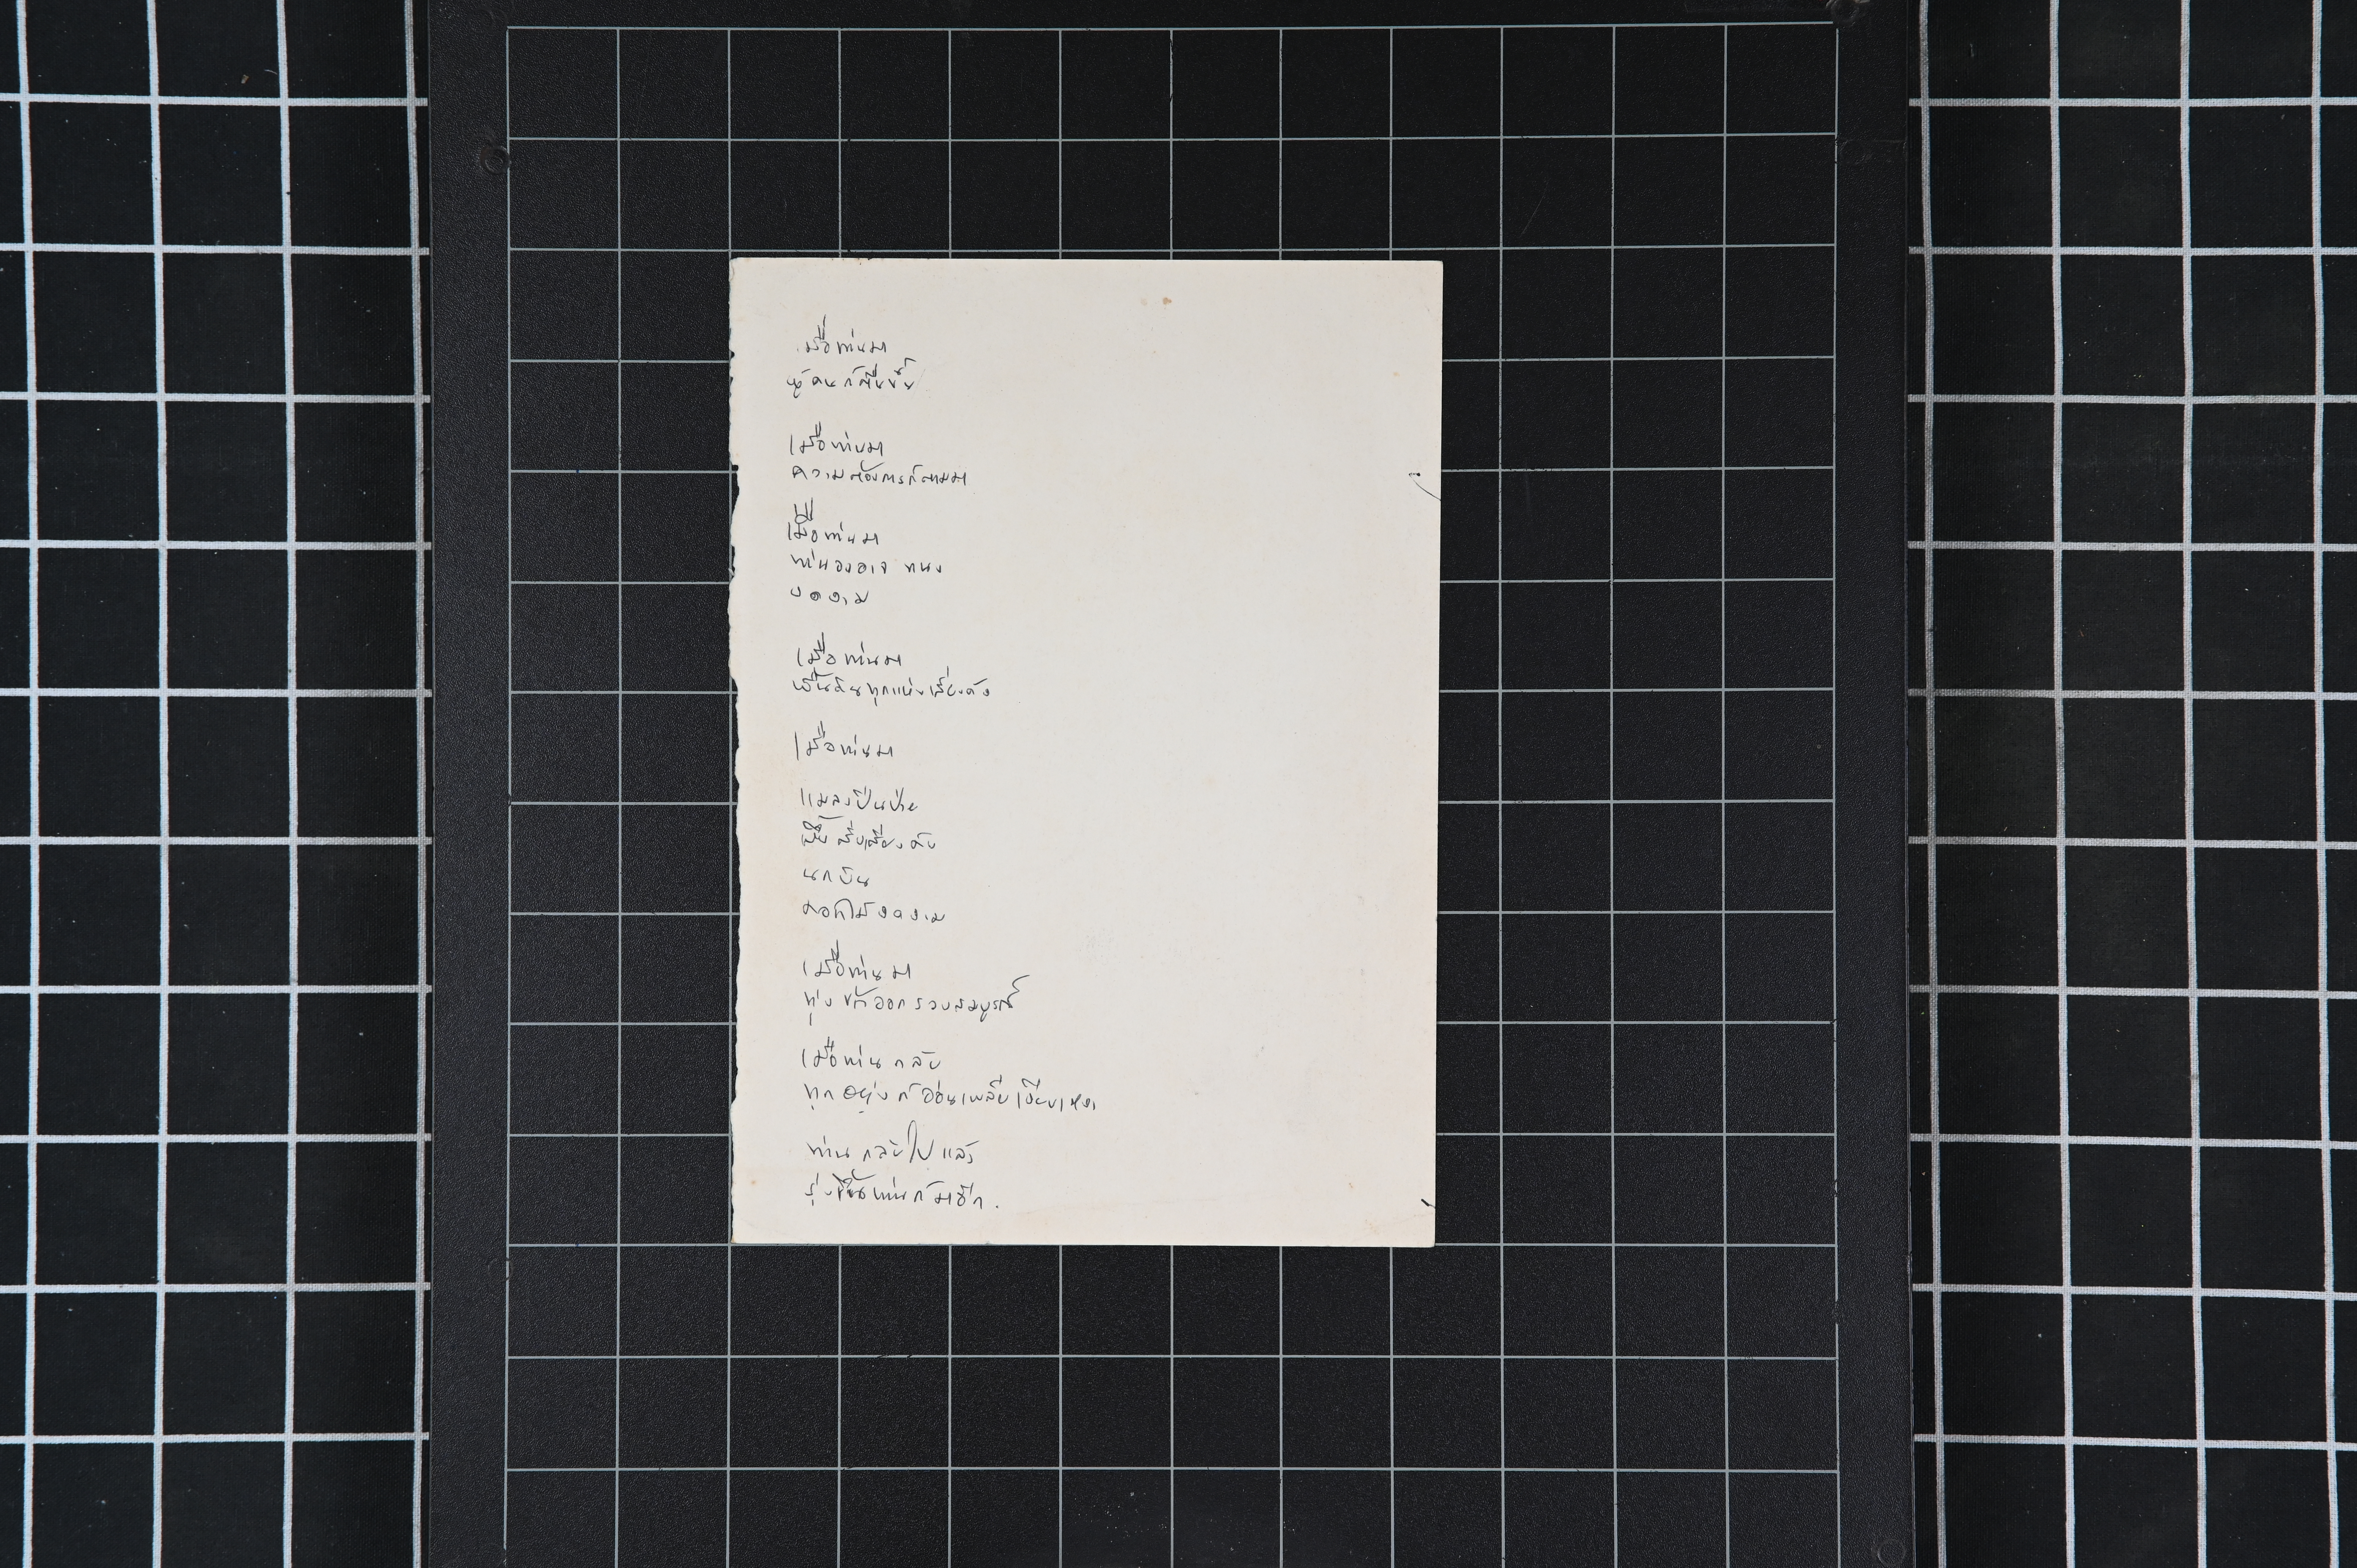 เมื่อท่านมา
ผู้คนก็ตื่นขึ้น
เมื่อท่านมา
ความต้องการก็ตามมา
เมื่อท่านมา
ท่านองอาจ ทนง
งดงาม
เมื่อท่านมา
ผืนดินทุกแห่งเสียงดัง
เมื่อท่านมา
แมลงปีนป่าย
ผึ้ง เสียงดัง
นกบิน
ดอกไม้งดงาม
เมื่อท่านมา
ทุ่งข้าวออกรวงสมบูรณ์
เมื่อท่านกลับ
ทุกอย่างก็อ่อนเพลียเงียบเหงา
ท่านกลับไปแล้ว
รุ่งขึ้นท่านก็มาอีก.